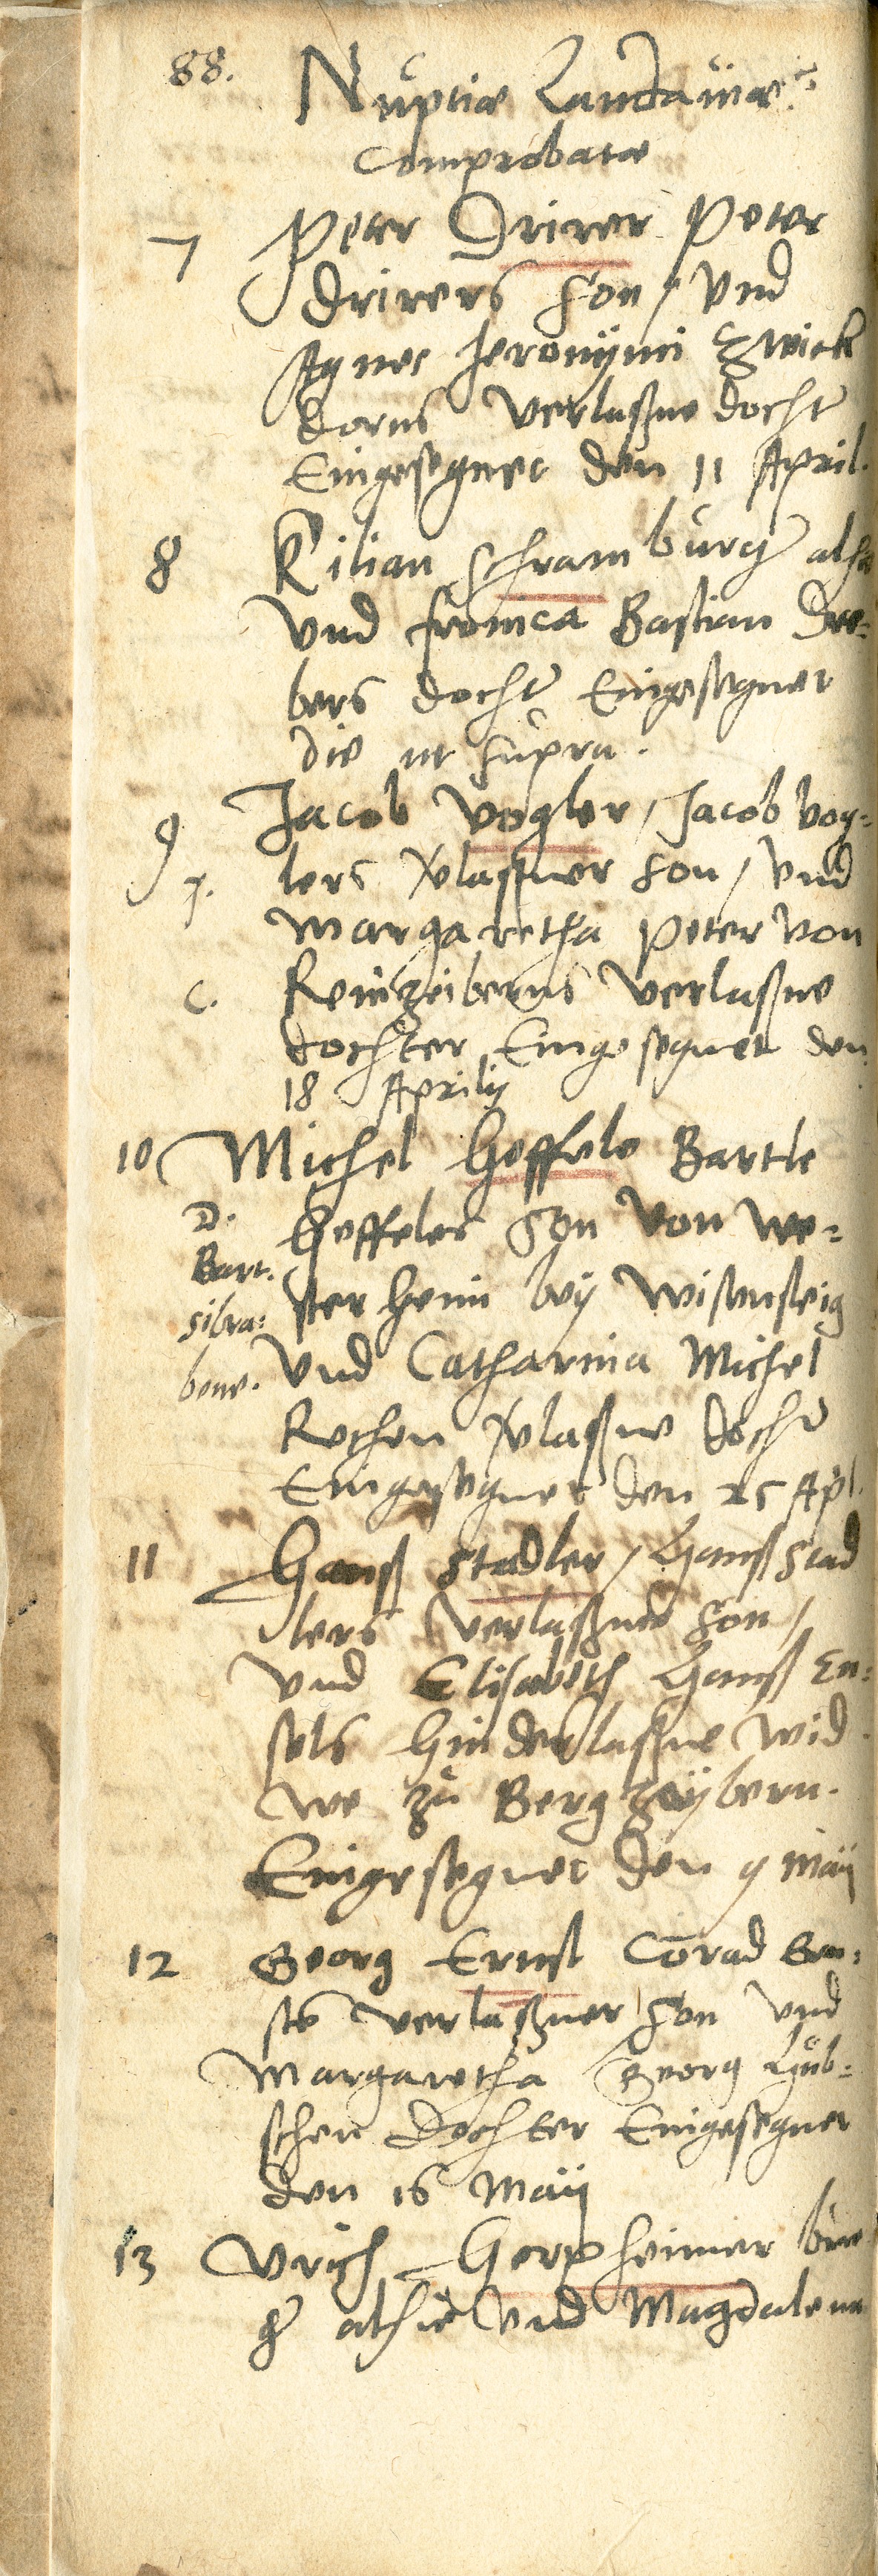 88.
Nuptiæ Landauiæ
Comprobatæ
7 Peter Drirer Peter
Drirers son / vnd
Agnes Jeronÿmi Zwick
dorns verlaßne docht
Eingesegnet den 11 April.
8 Kilian schramburg alhie
vnd fronica Bastian Dre-
bers docht Eingesegnet
die ut supra.
9 Jacob Vogler / Jacob vog-
lers vlassner son / vnd
f.
Margaretha Peter von
c. Reinzeiberns verlaßne
dochter Eingesegnet den
18 Aprilis
10 Michel Heffele Bartle
D. Heffeles son von We-
Bart.
sterheim bÿ Wisensteig
silva:
bene. vnd Catharina Michel
Rochen vlaßne docht
Eingesegnet den 25 Apl.
11 Hanß Stadler / Hanß Stad
lers verlaßne son /
vnd Elisabeth Hanß En-
sels hinderlaßne wid-
we zu Bergzäÿbern.
Eingesegnet den 9 Maÿ
12 Georg Ernst Conrad Ern-
sts verlaßner son vnd
Margaretha Georg Hüb-
schen dochter Eingesegnet
den 16 Maÿ
13 Vrich Herxheimer bur
g alhie vnd Magdalena